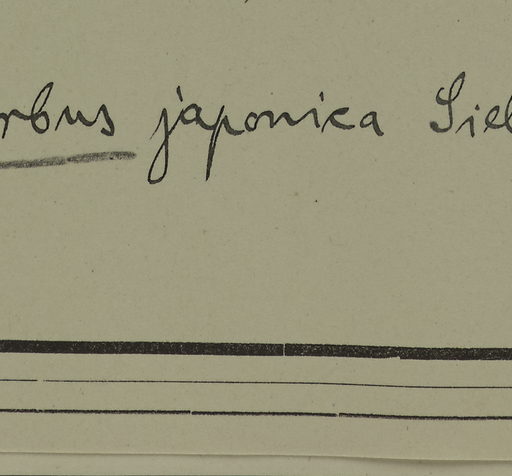 rbus japonica Sieb